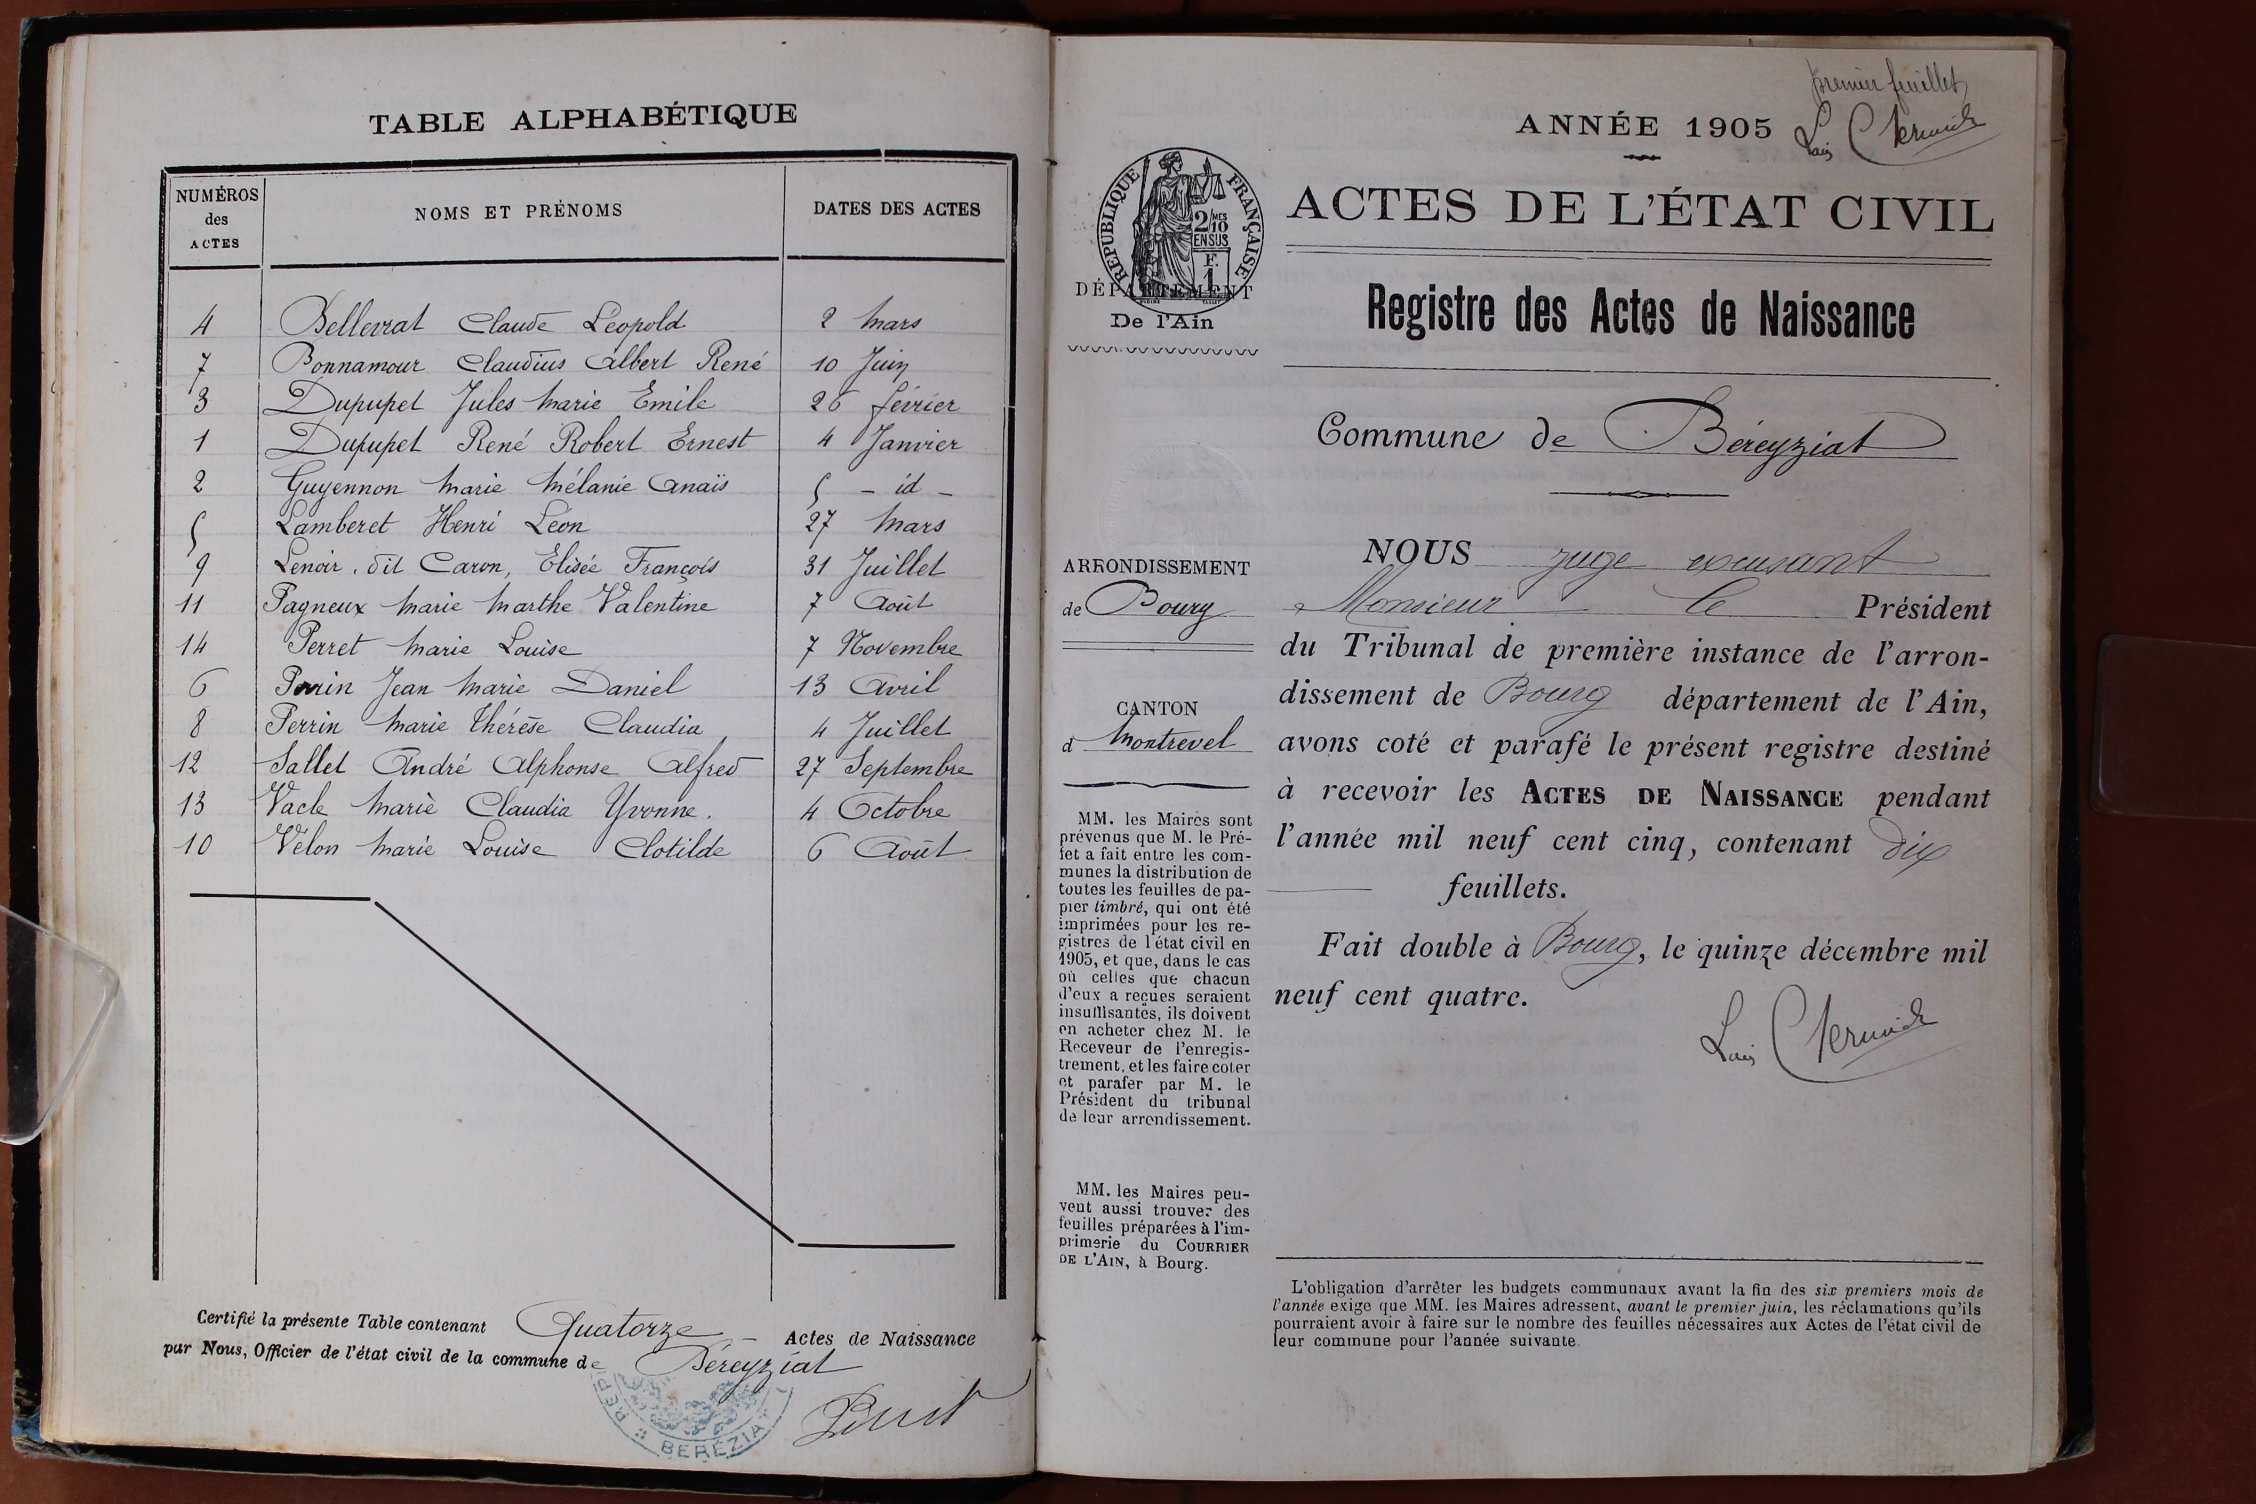 TABLE ALPHABÉTIQUE
NUMÉROS des ACTES NOMS ET PRÉNOMS DATES DES ACTES
4 Bellevrat Claude Leopold 2 Mars
7 Bonnamour Claudius Albert René 10 Juin
3 Dupupet Jules Marie Emile 26 février
1 Dupupet René Robert Ernest 4 Janvier
2 Guyennon Marie Mélanie Anaïs 5 - id -
5 Lamberet Henri Léon 27 Mars
9 Lenoir, dit Caron, Elisée François 31 Juillet
11 Pagneux Marie Marthe Valentine 7 Août
14 Perret Marie Louise 7 Novembre
6 Perrin Jean Marie Daniel 13 Avril
8 Perrin Marie Thérèse Claudia 4 Juillet
12 Sallet André Alphonse Alfred 27 Septembre
13 Vacle Marie Claudia Yvonne. 4 Octobre
10 Vélon Marie Louise Clotilde 6 Août
Certifié la présente Table contenant Quatorze - Actes de Naissance
par Nous, Officier de l'état civil de la commune de Béreyziat
BERÉZIAT
premier feuillet
ANNÉE 1905
RÉPUBLIQUE FRANÇAISE
2/10 MES
EN SUS
F.
1
DÉPARTEMENT
De l'Ain
ACTES DE L'ÉTAT CIVIL
Registre des Actes de Naissance
Commune de Béreyziat
ARRONDISSEMENT
de Bourg
CANTON
d Montrevel
MM. les Maires sont
prévenus que M. le Pré-
fet a fait entre les com-
munes la distribution de
toutes les feuilles de pa-
pier timbré, qui ont été
imprimées pour les re-
gistres de l'état civil en
1905, et que, dans le cas
où celles que chacun
d'eux a reçues seraient
insuffisantes, ils doivent
en acheter chez M. le
Receveur de l'enregis-
trement, et les faire coter
et parafer par M. le
Président du tribunal
de leur arrondissement.
MM. les Maires peu-
vent aussi trouver des
feuilles préparées à l'im-
primerie du COURRIER
DE L'AIN, à Bourg.
NOUS juge excusant
Monsieur le Président
du Tribunal de première instance de l'arron-
dissement de Bourg département de l'Ain,
avons coté et parafé le présent registre destiné
à recevoir les ACTES DE NAISSANCE pendant
l'année mil neuf cent cinq, contenant dix
feuillets.
Fait double à Bourg, le quinze décembre mil
neuf cent quatre.
L'obligation d'arrêter les budgets communaux avant la fin des six premiers mois de
l'année exige que MM. les Maires adressent, avant le premier juin, les réclamations qu'ils
pourraient avoir à faire sur le nombre des feuilles nécessaires aux Actes de l'état civil de
leur commune pour l'année suivante.